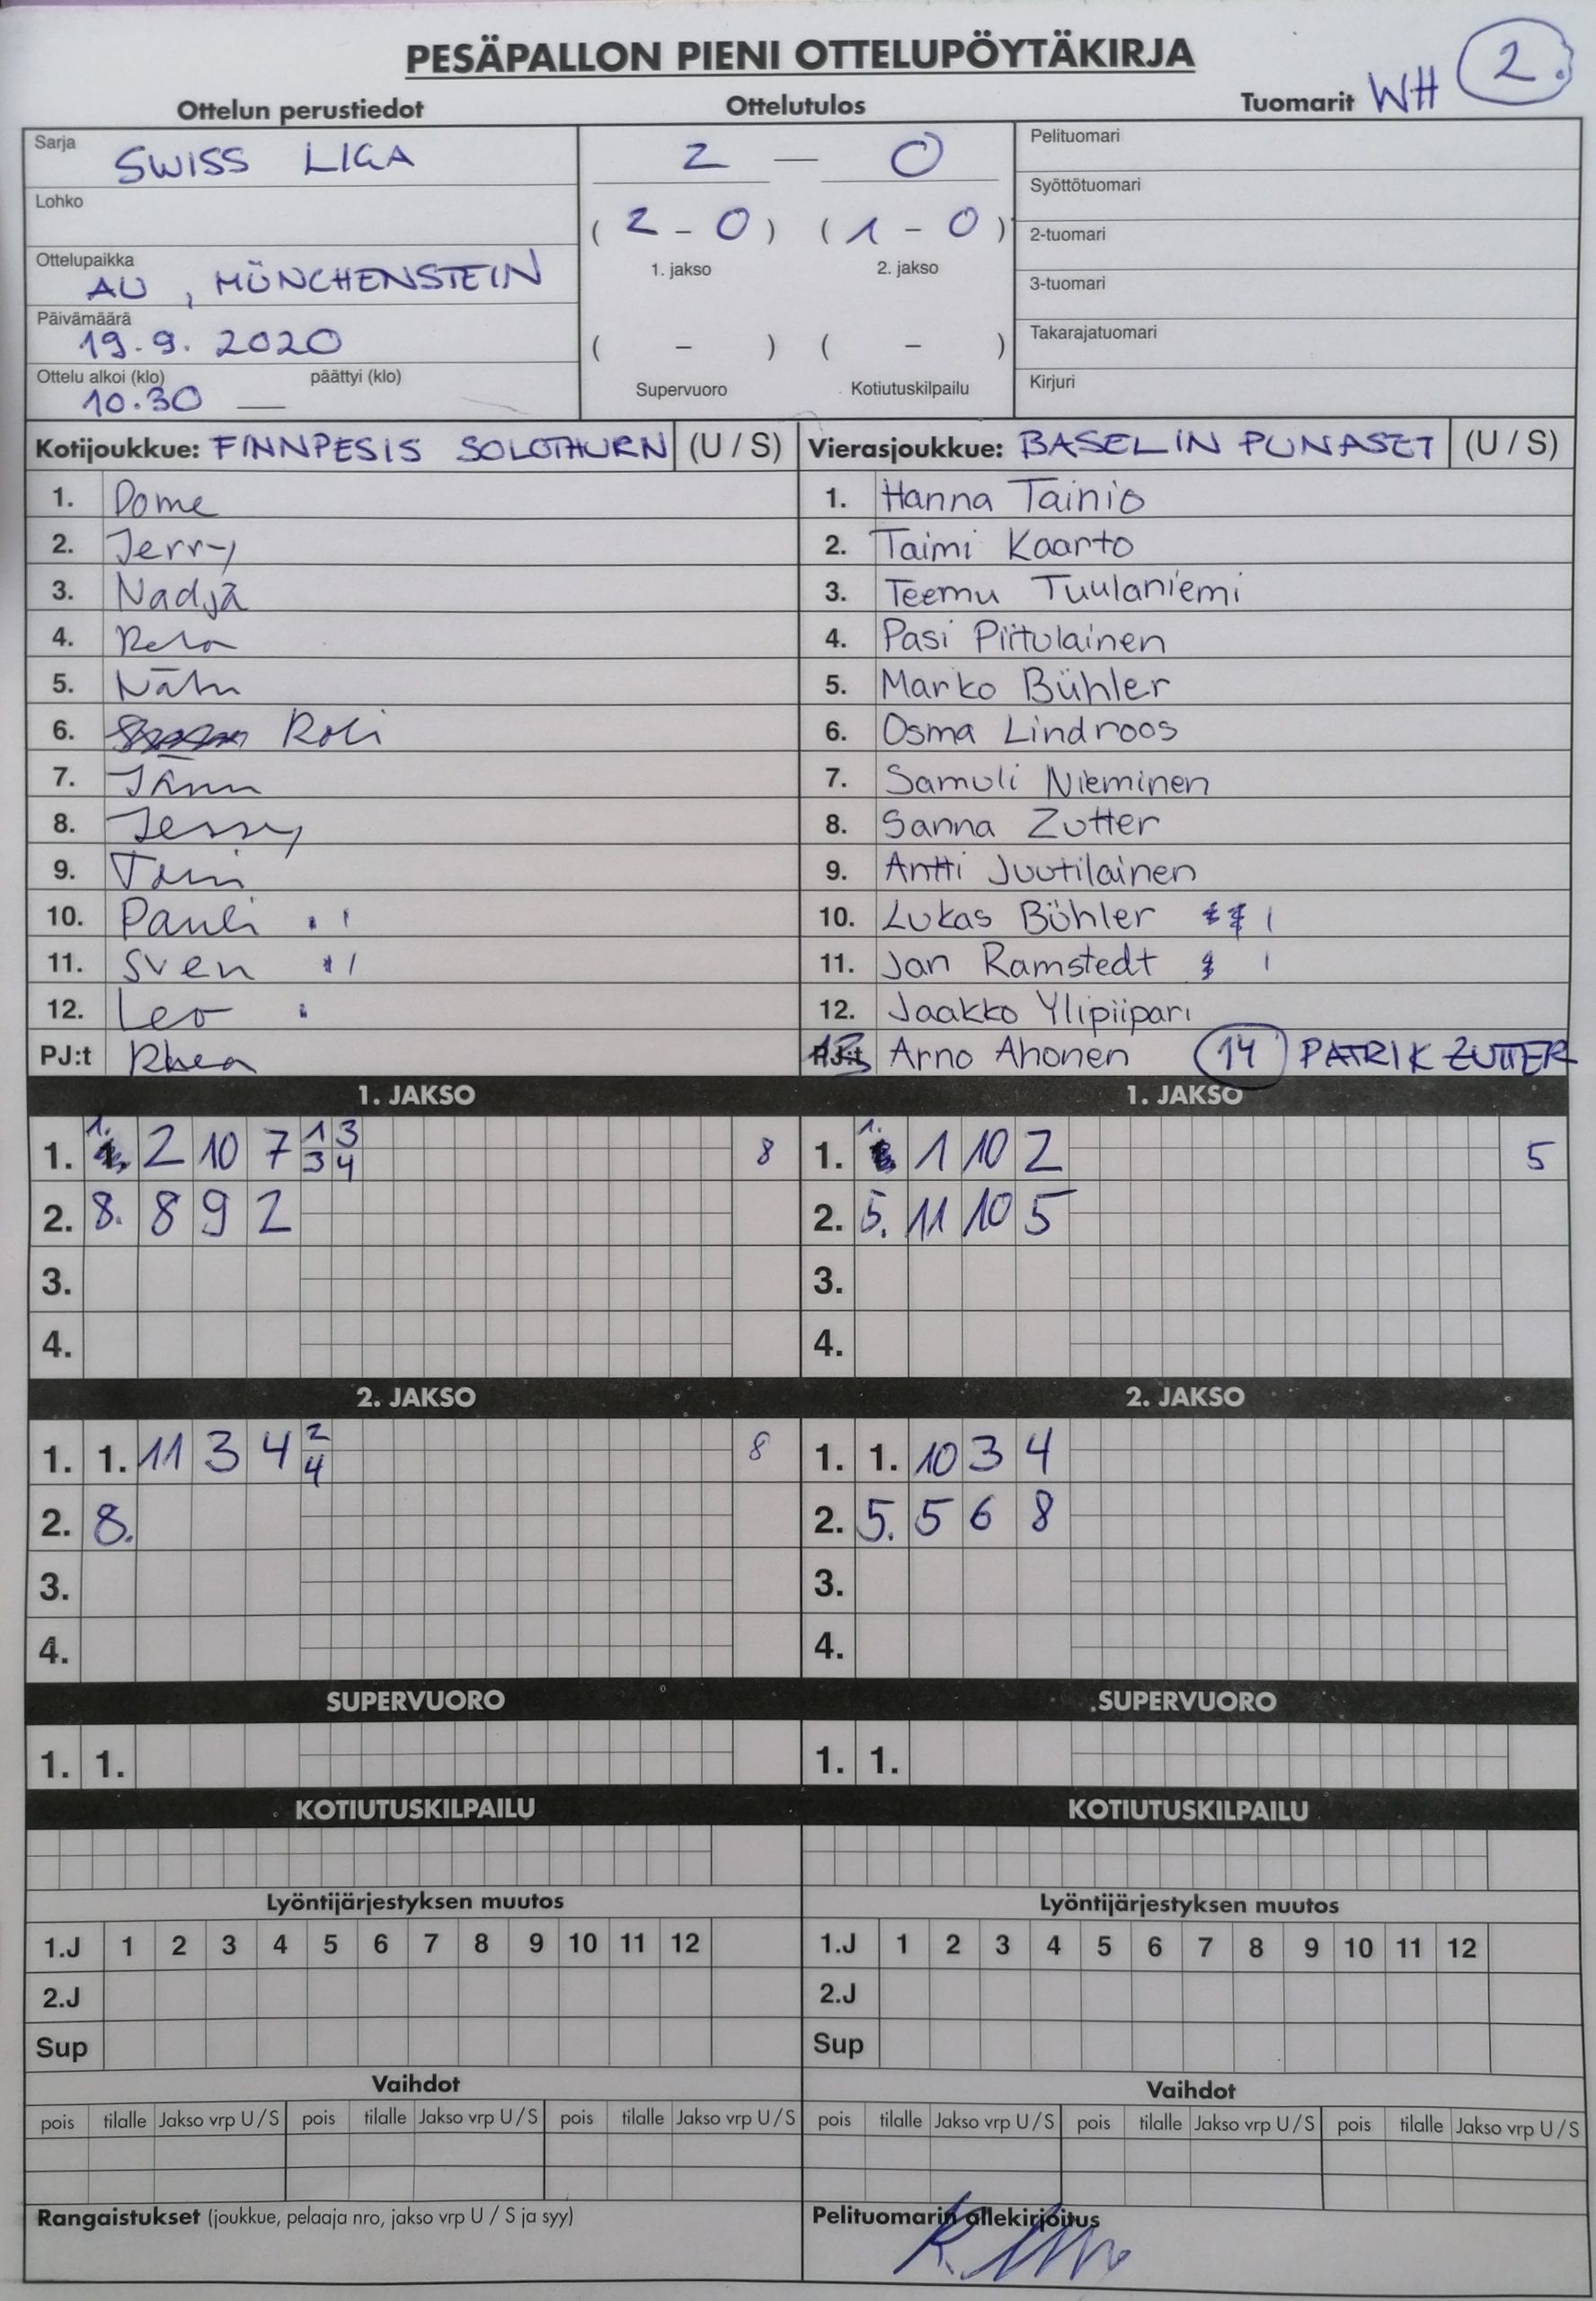 PESÄPALLON PIENI OTTELUPÖYTÄKIRJA
2.
Ottelun perustiedot Ottelutulos Tuomarit WH
Sarja SWISS LIGA
Lohko
Ottelupaikka AU, MÜNCHENSTEIN
Päivämäärä 19.9.2020
Ottelu alkoi (klo) 10.30 päättyi (klo) —
2 — 0
(2 - 0) (1 - 0)
1. jakso 2. jakso
( - ) ( - )
Supervuoro Kotiutuskilpailu
Pelituomari
Syöttötuomari
2-tuomari
3-tuomari
Takarajatuomari
Kirjuri
Kotijoukkue: FINNPESIS SOLOTHURN (U / S)
1. Dome
2. Jerry
3. Nadja
4.
5.
6. Roli
7.
8. Jessy
9.
10. Pauli
11. Sven
12. Leo
PJ:t Rhea
Vierasjoukkue: BASELIN PUNASET (U / S)
1. Hanna Tainio
2. Taimi Kaarto
3. Teemu Tuulaniemi
4. Pasi Piitulainen
5. Marko Bühler
6. Osma Lindroos
7. Samuli Nieminen
8. Sanna Zutter
9. Antti Juutilainen
10. Lukas Bühler
11. Jan Ramstedt
12. Jaakko Ylipiipari
13 Arno Ahonen 14 PATRIK ZUTTER
1. JAKSO
1. 1. 2 10 7 1 3 8
3 4
2. 8. 8 9 2
3.
4.
1. JAKSO
1. 1. 1 10 2 5
2. 5. 11 10 5
3.
4.
2. JAKSO
1. 1. 11 3 4 2 8
4
2. 8.
3.
4.
2. JAKSO
1. 1. 10 3 4
2. 5. 5 6 8
3.
4.
SUPERVUORO
1. 1.
SUPERVUORO
1. 1.
KOTIUTUSKILPAILU
KOTIUTUSKILPAILU
Lyöntijärjestyksen muutos
1.J 1 2 3 4 5 6 7 8 9 10 11 12
2.J
Sup
Lyöntijärjestyksen muutos
1.J 1 2 3 4 5 6 7 8 9 10 11 12
2.J
Sup
Vaihdot
pois tilalle Jakso vrp U / S pois tilalle Jakso vrp U / S pois tilalle Jakso vrp U / S
Vaihdot
pois tilalle Jakso vrp U / S pois tilalle Jakso vrp U / S pois tilalle Jakso vrp U / S
Rangaistukset (joukkue, pelaaja nro, jakso vrp U / S ja syy)
Pelituomarin allekirjoitus